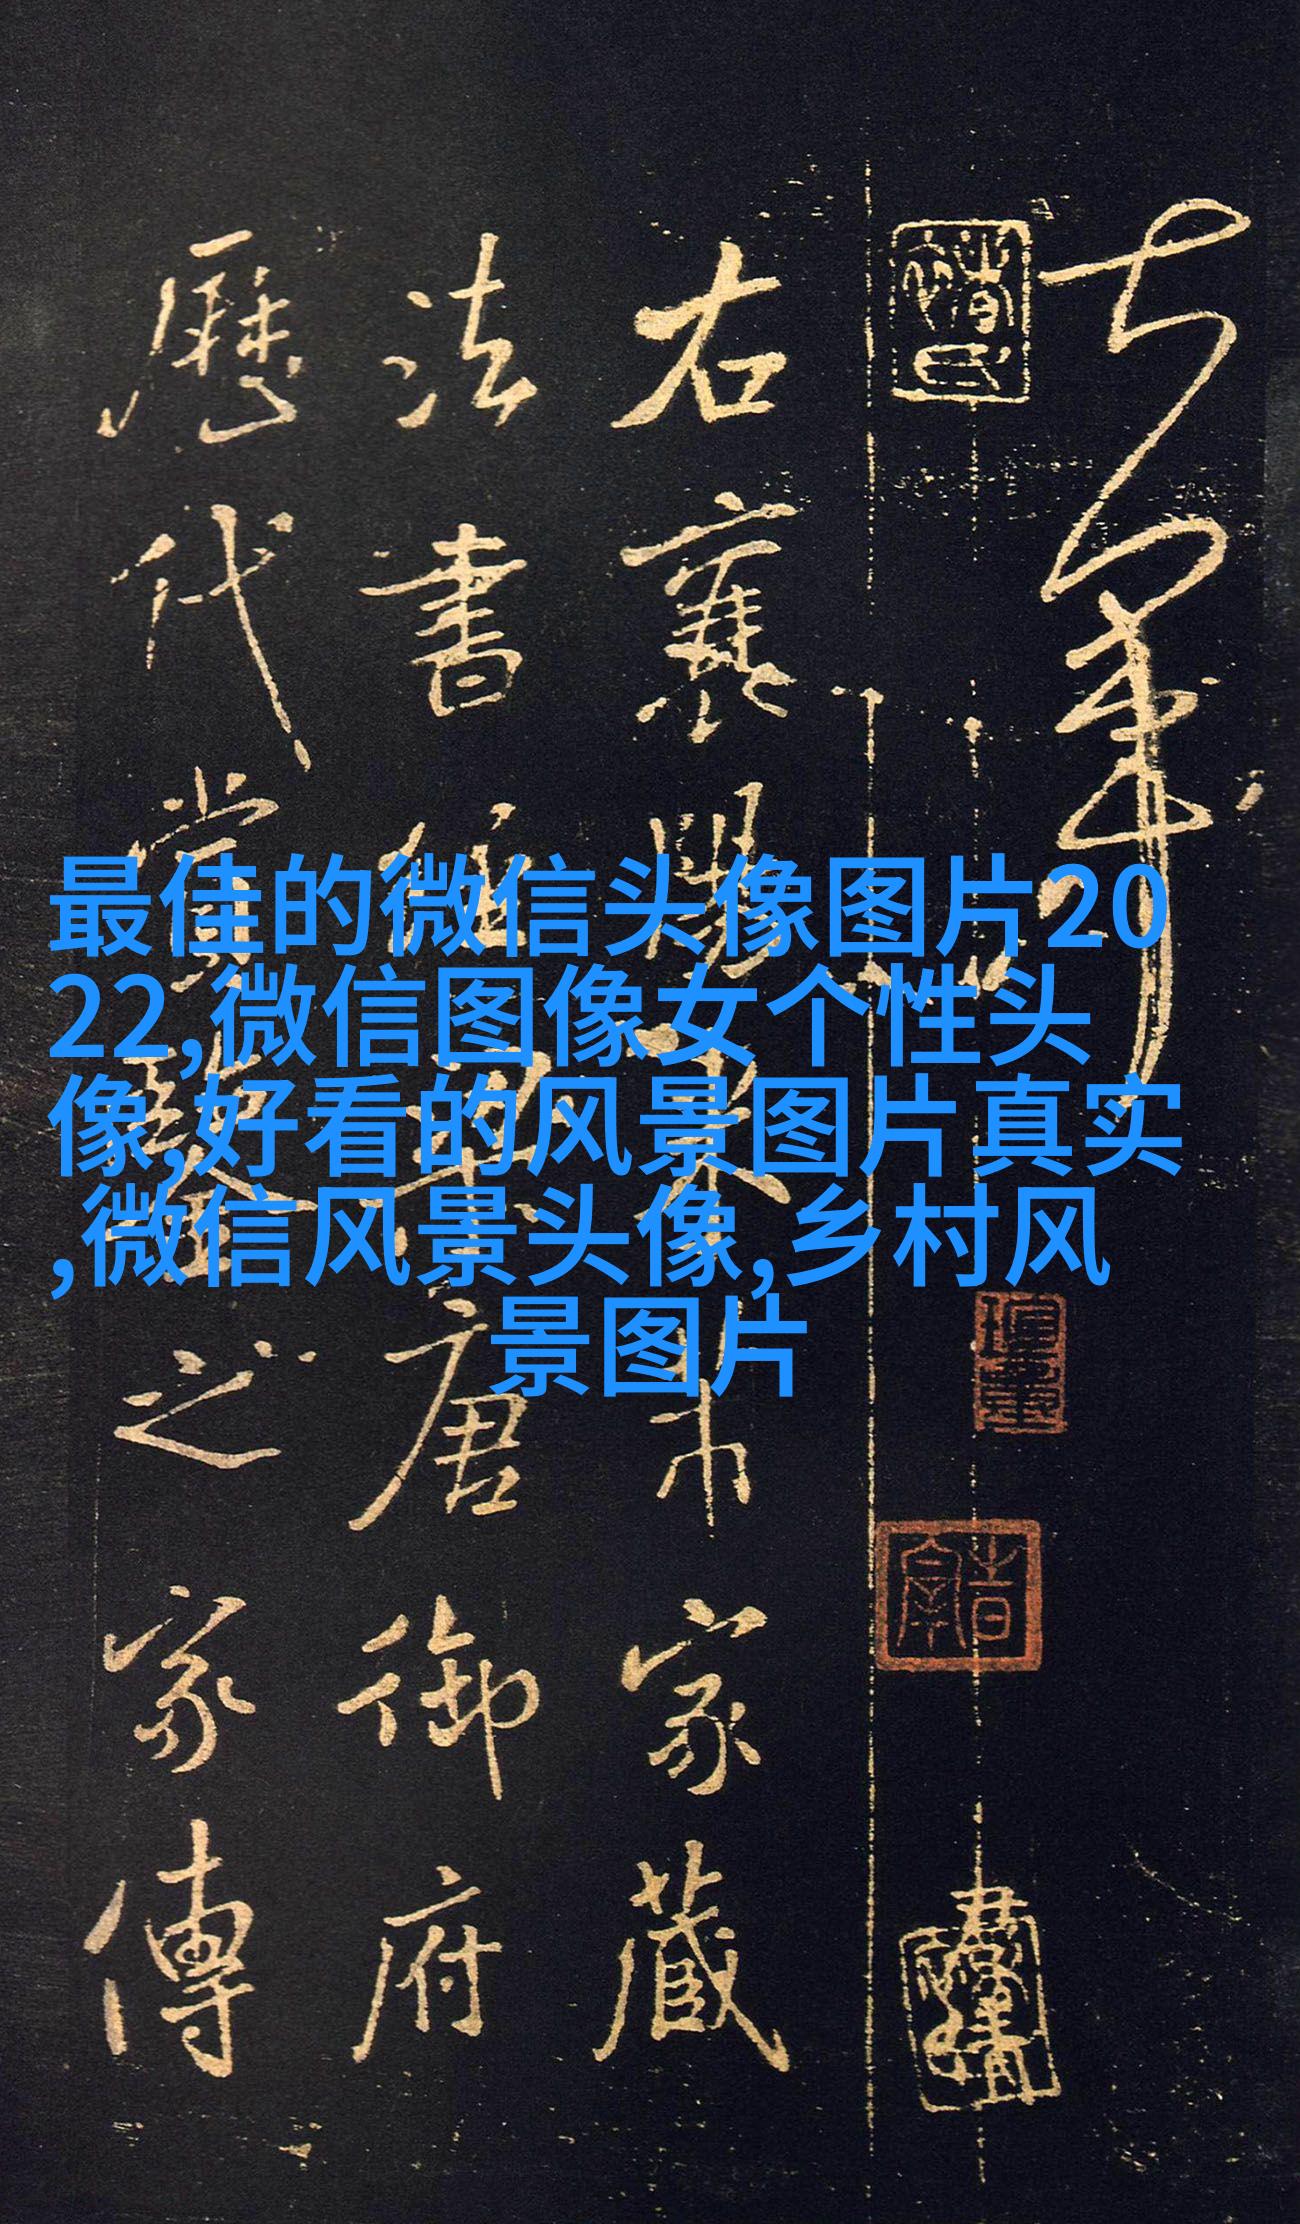 最佳的微信头像图片20
22,微信图像女个性头
像,好看的风景图片真实
,微信风景头像,乡村风
景图片
右襄陽米芾家藏
法書唐御府
歷代賞鑒之家傳